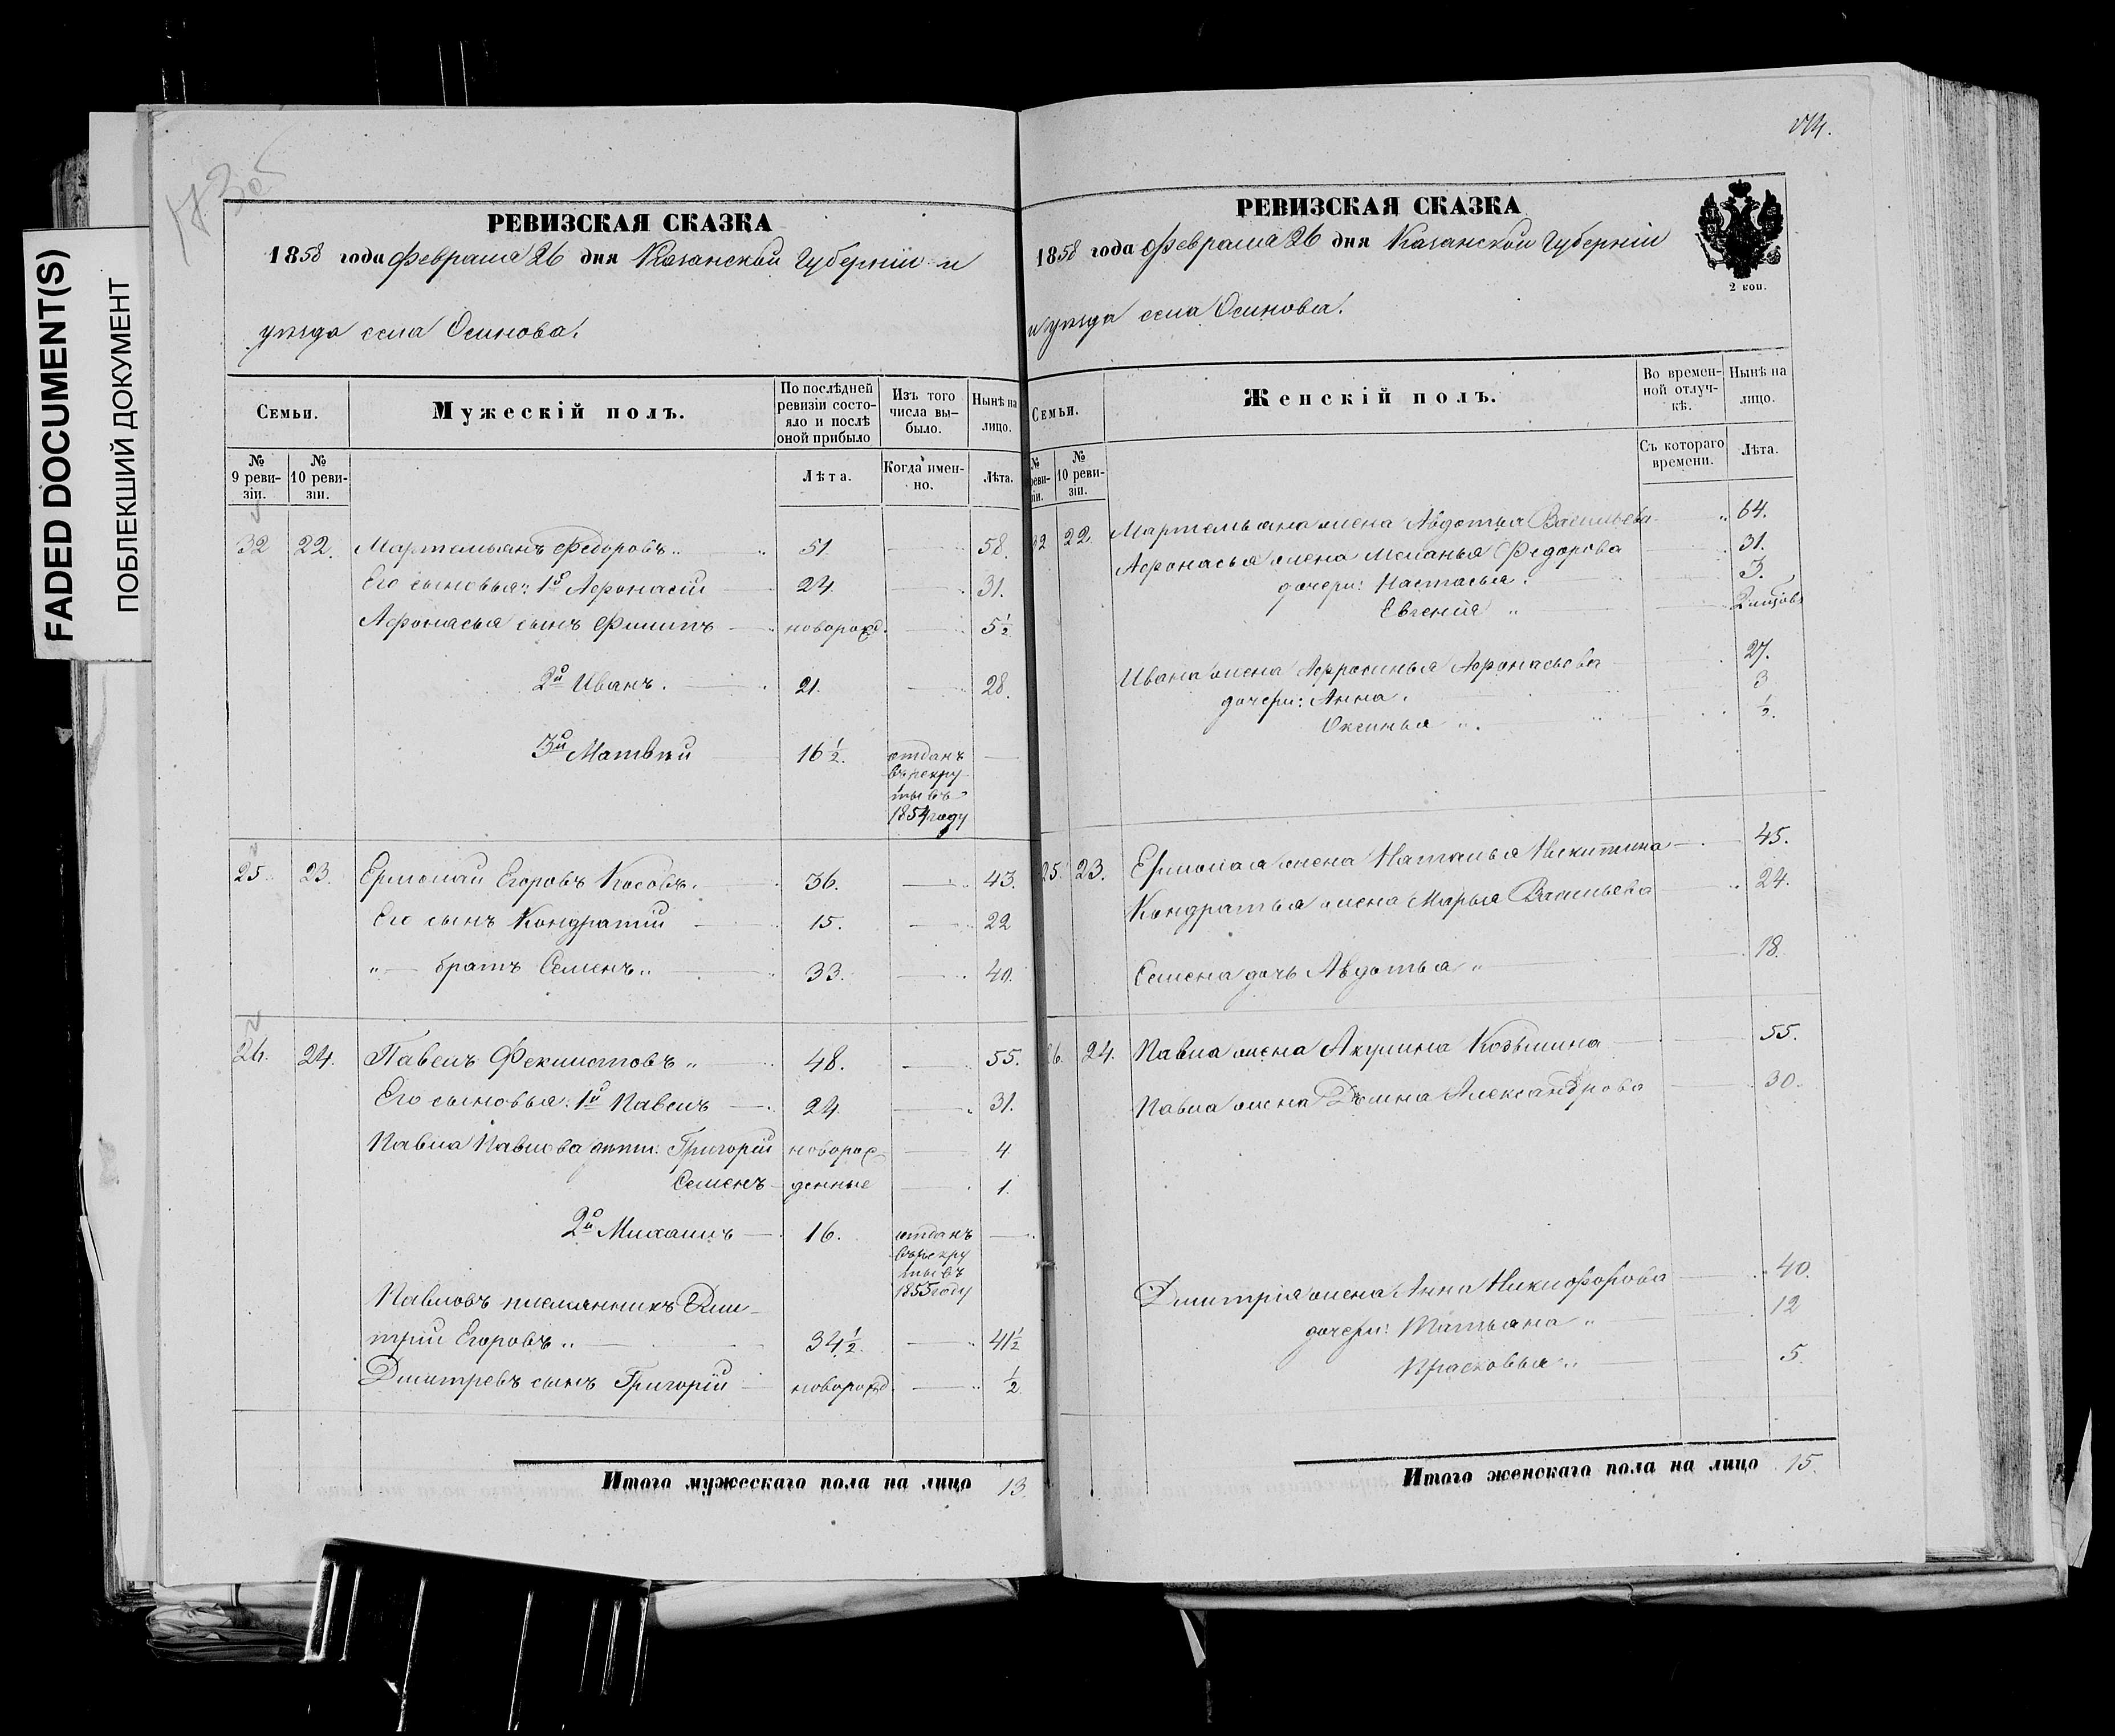 FADED DOCUMENT(S)
ПОБЛЕКШИЙ ДОКУМЕНТ
РЕВИЗСКАЯ СКАЗКА
1858 года Февраля 26 дня Казанской Губернiи и
уѣзда села Осинова.
Семьи.
Мужескій полъ.
По послѣдней
ревизіи состо-
яло и послѣ
оной прибыло
Изъ того
числа вы-
было.
Нынѣ на
лицо.
№
9 реви-
зіи.
№
10 реви-
зіи.
Лѣта.
Когда имен-
но.
Лѣта.
32 22. Мартемьянъ Федоровъ 51. 58.
Его сыновья: 1й Афонасiй 24. 31.
Афонасья сынъ Филипъ новорожд. 5½
2й Иванъ. 21. 28.
3й Матвѣй 16½.
отданъ
въ рекру
ты въ
1854 году
25. 23. Ермолай Егоровъ Косовъ. 36. 43.
Его сынъ Кондратiй 15. 22
„ братъ Семенъ 33. 40.
26. 24. Павелъ Феклистовъ 48. 55.
Его сыновья: 1й Павелъ 24. 31.
Павла Павлова дѣти: Григорiй новорож 4
Семенъ денные 1.
2й Михаилъ 16.
отданъ
въ рекру
ты въ
1855 году
Павловъ племянникъ Дми-
трiй Егоровъ 34½. 41½
Дмитревъ сынъ Григорiй новорожд. ½
Итого мужескаго пола на лицо 13.
РЕВИЗСКАЯ СКАЗКА
1858 года Февраля 26 дня Казанской Губернiи
и уѣзда села Осинова.
2 коп.
Семьи.
Женскій полъ.
Во времен-
ной отлуч-
кѣ.
Нынѣ на
лицо.
№
реви-
зіи.
№
10 реви-
зіи.
Съ котораго
времени.
Лѣта.
32 22. Мартемьяна жена Авдотья Васильева 64.
Афонасья жена Меланья Федорова 31.
дочери: Настасья.
Евгенiя
Ивана жена Афросинья Афонасьева 27.
дочери: Анна. 3
Оксинья ½.
25. 23. Ермолая жена Наталья Никитина 45.
Кондратья жена Марья Васильева 24.
Семена дочь Авдотья 18.
26. 24. Павла жена Акулина Козьмина 55.
Павла жена Александрова 30.
Дмитрiя жена Анна Никифорова 40.
дочери: Татьяна 12
Прасковья 5.
Итого женскаго пола на лицо 15.